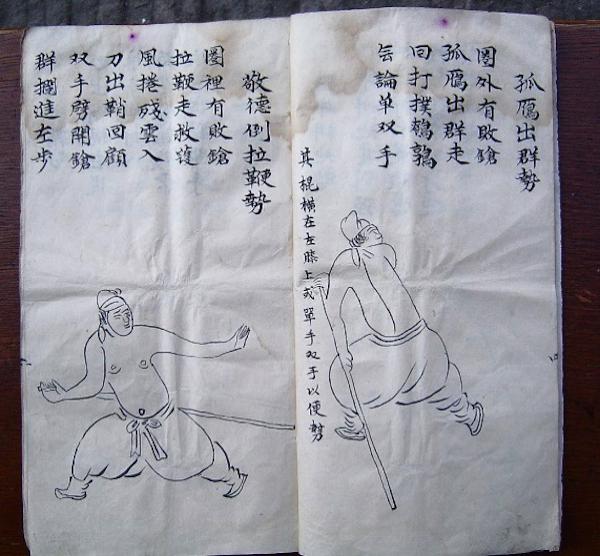 孤鴈出群勢
圏外有敗鎗
孤鴈出群走
回打撲鵪鶉
去論单双手
其棍横在左膝上或單手双手以使勢
敬德倒拉鞭勢
圏裡有敗鎗
拉鞭走救護
風捲残雲入
刀出鞘回顧
双手劈開鎗
群攔進左步